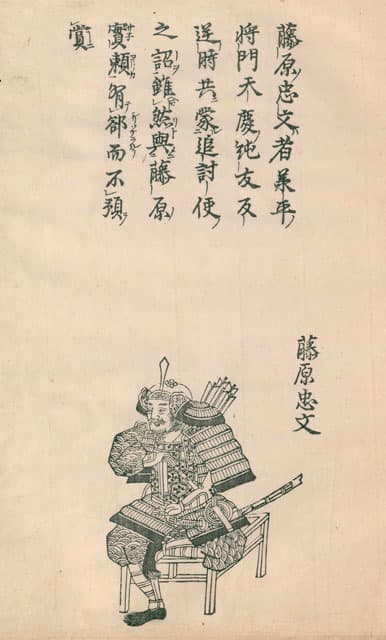 藤原忠文者承平
將門天慶純友反
逆時共蒙追討使
之詔雖然與藤原
實頼有郤而不預
賞
藤原忠文